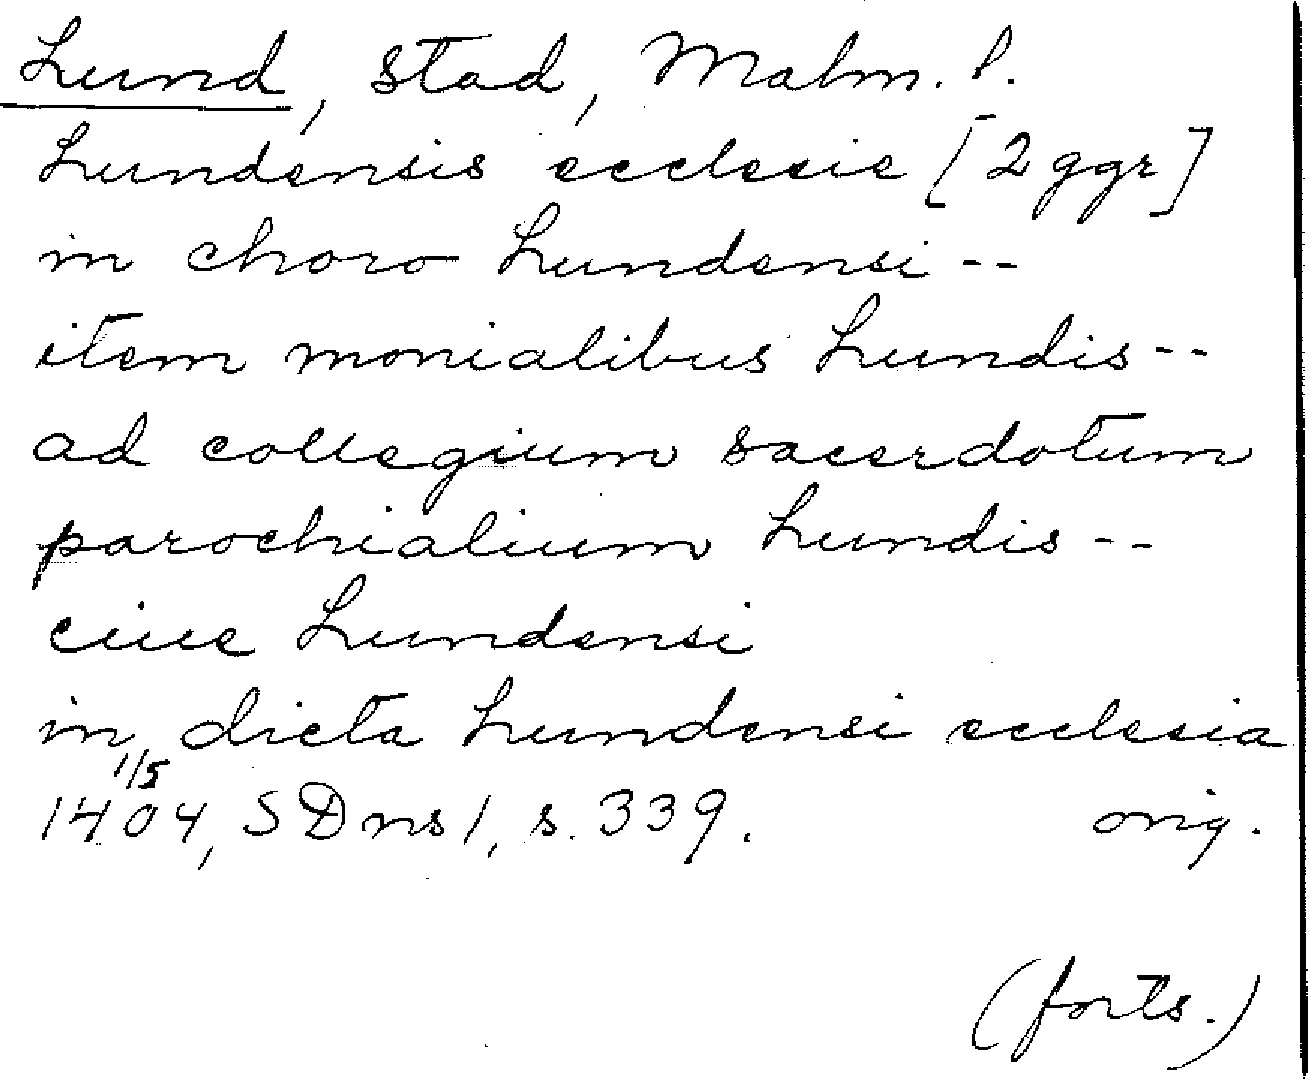 Lund, stad, Malm. l.
Lundensis ecclesie [2 ggr]
in choro Lundensi --
item monialibus Lundis --
ad collegium sacerdotum
parochialium Lundis --
ciue Lundensi
in dicta Lundensi ecclesia
1/5
1404, SDns 1, s. 339. orig.
(forts.)